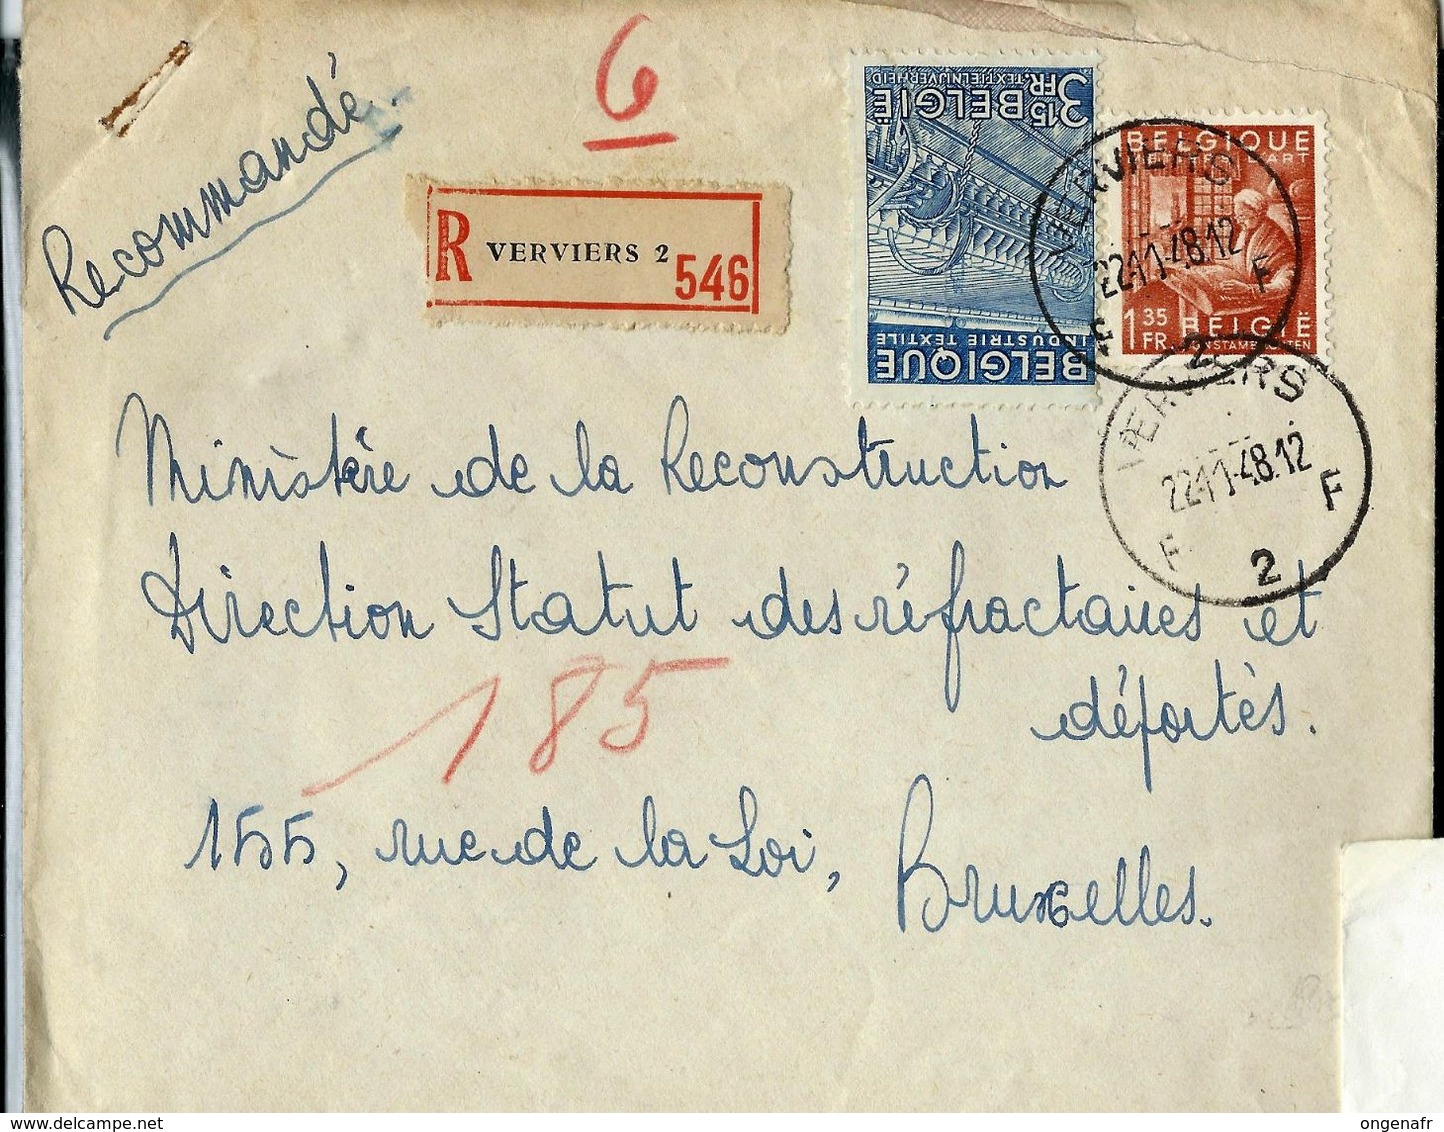 6
Recommandé.
R VERVIERS 2 546
3 FR. 15 BELGIË
TEXTIELNIJVERHEID
BELGIQUE
INDUSTRIE TEXTILE
BELGIQUE
D'ART
1 FR. 35 BELGIË
KUNSTAMBACHTEN
VERVIERS
22-11-48.12
F 2 F
VERVIERS
22-11-48.12
F 2 F
Ministère de la Reconstruction
Direction Statut des réfractaires et
déportès.
185
155, rue de la Loi, Bruxelles.
ongenafr